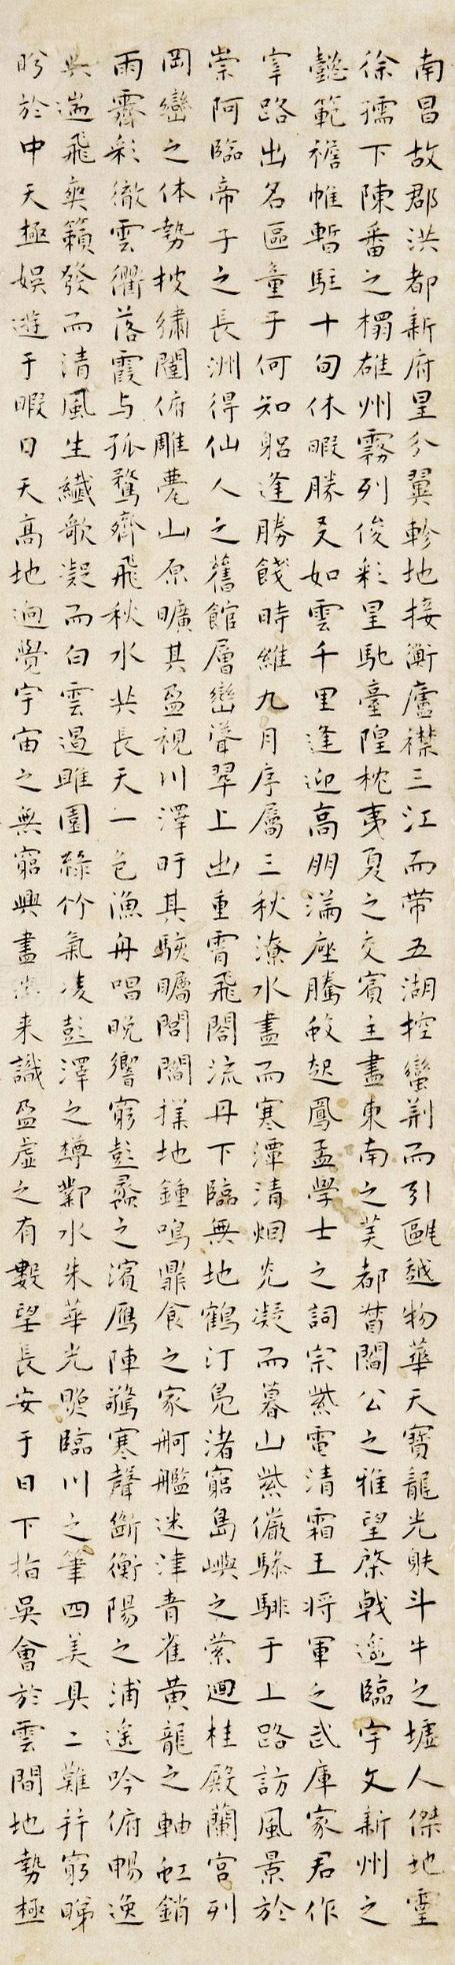 南昌故郡洪都新府星分翼軫地接衡廬襟三江而帶五湖控蠻荆而引甌越物華天寶龍光䠶斗牛之墟人傑地霊
徐孺下陳番之榻雄州霧列俊彩星馳臺隍枕夷夏之交賓主盡東南之美都督閻公之雅望棨戟遥臨宇文新州之
懿範襜帷暫駐十旬休暇勝友如雲千里逢迎高朋満座騰蛟起鳳孟學士之詞宗紫電清霜王将軍之武庫家君作
宰路出名區童子何知躬逢勝餞時維九月序屬三秋潦水盡而寒潭清烟光凝而暮山紫儼驂騑于上路訪風景於
崇阿臨帝子之長洲得仙人之舊館層巒聳翠上出重霄飛閣流丹下臨無地鶴汀凫渚窮島嶼之縈迴桂殿蘭宫列
岡巒之体勢披繡闥俯雕甍山原曠其盈視川澤盱其駭矚閭閻撲地鍾鳴鼎食之家舸艦迷津青雀黄龍之軸虹銷
雨霽彩徹雲衢落霞与孤鶩齊飛秋水共長天一色漁舟唱晚響窮彭蠡之濱鴈陣驚寒聲斷衡陽之浦遥吟俯暢逸
興遄飛爽籟發而清風生纖歌凝而白雲遏睢園緑竹氣凌彭澤之樽鄴水朱華光照臨川之筆四美具二難并窮睇
眄於中天極娱遊于暇日天高地迥覺宇宙之無窮興盡悲来識盈虚之有數望長安于日下指吳會於雲間地勢極